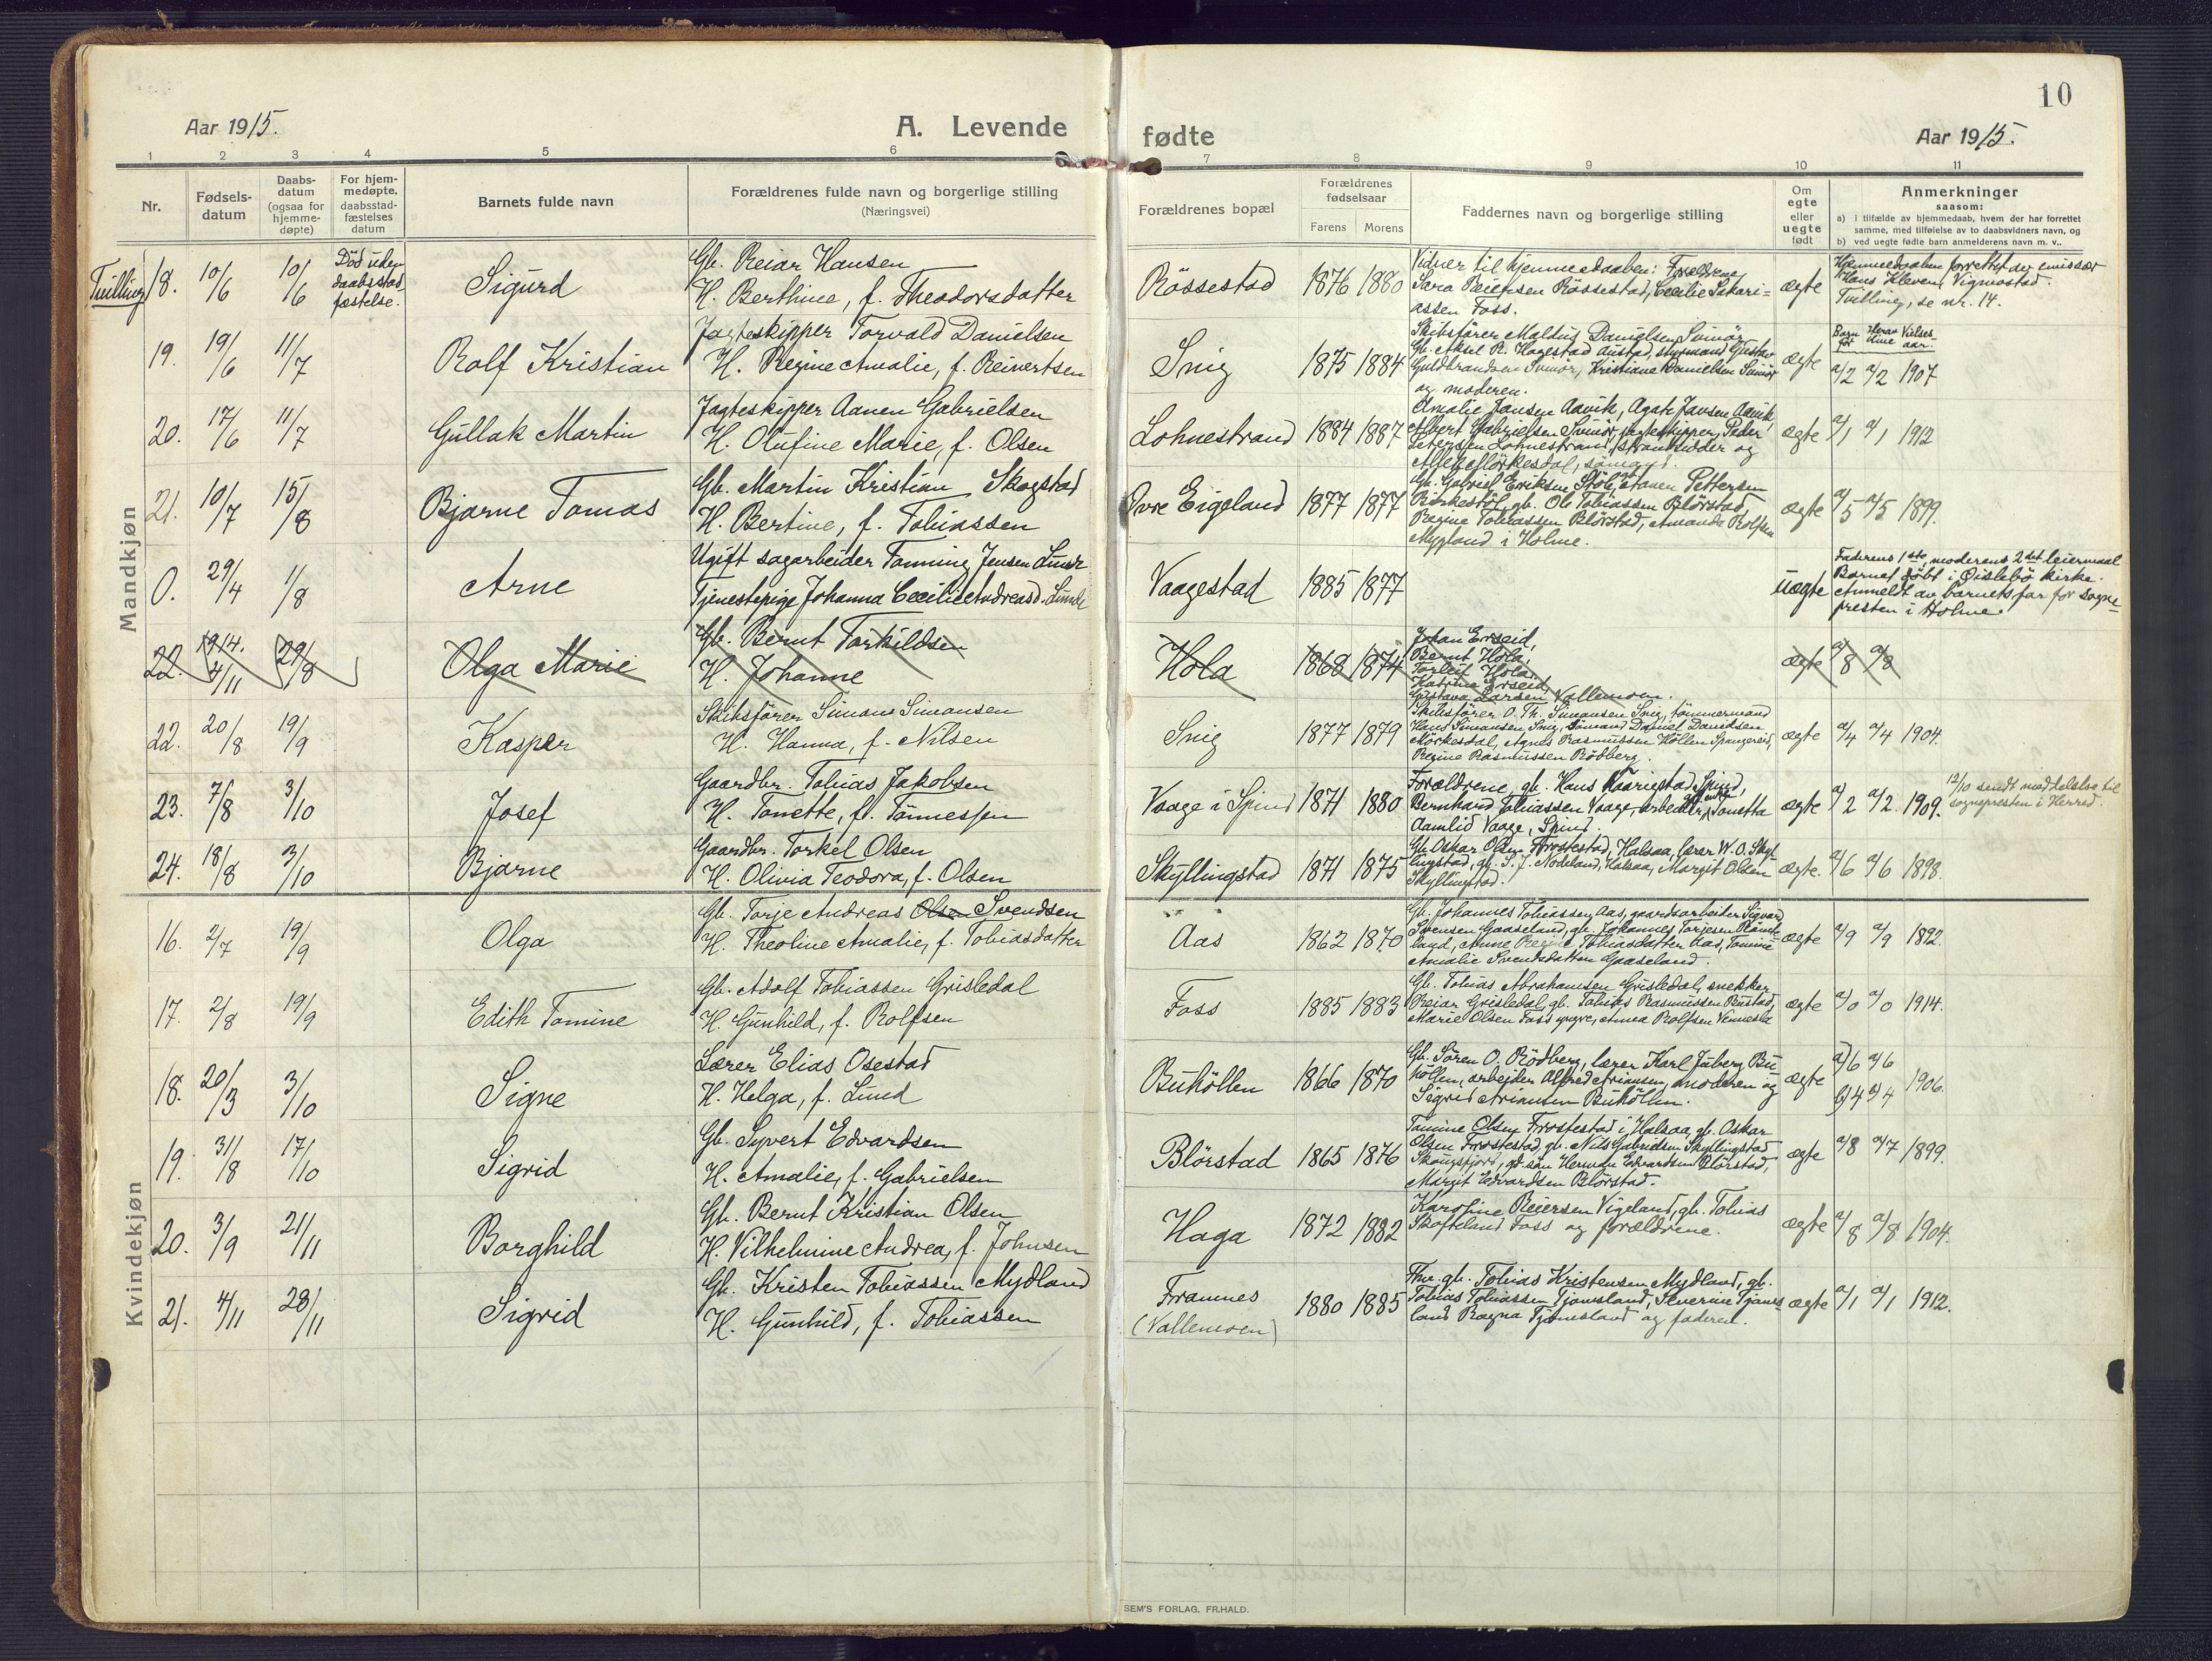 10
Aar 1915.
A. Levende fødte
Aar 1915.
1 2 3 4 5 6 7 8 9 10 11
Nr.
Fødsels-
datum
Daabs-
datum
(ogsaa for
hjemme-
døpte)
For hjem-
medøpte,
daabsstad-
fæstelses
datum
Barnets fulde navn
Forældrenes fulde navn og borgerlige stilling
(Næringsvei)
Forældrenes bopæl
Forældrenes
fødselsaar
Farens Morens
Faddernes navn og borgerlige stilling
Om
egte
eller
uegte
født
Anmerkninger
saasom:
a) i tilfælde av hjemmedaab, hvem der har forrettet
samme, med tilføielse av to daabsvidners navn, og
b) ved uegte fødte barn anmelderens navn m. v..
Mandkjøn
Tvilling 18. 10/6 10/6
Død uden
daabsstad
fæstelse.
Sigurd
Gb. Reiar Hansen
H. Berthine, f. Theodorsdatter
Røssestad 1876 1880
Vidner til hjemmedaaben: Forældrene,
Sara Reiersen Røssestad, Cecilie Sakari=
assen Foss.
ægte
Hjemmedaaben forrettet av emissær
Hans Kleven, Vigmostad.
Tvilling, se nr. 14.
19. 19/6 11/7
Rolf Kristian
Jagteskipper Torvald Danielsen
H. Regine Amalie, f. Reinertsen
Snig 1875 1884
Skibsfører Maldus Danielsen Svinør,
Gb. Aksel R. Hagestad Austad, styrmand Gustav
Guldbrandsen Svinør, Kristiane Danielsen Svinør
og moderen.
ægte
a/2 a/2 1907
20. 17/6 11/7
Gullak Martin
Jagteskipper Aanen Gabrielsen
H. Olufine Marie, f. Olsen
Lohnestrand 1884 1887
Amalie Jansen Aavik, Agate Jansen Aavik,
Albert Gabrielsen Svinør, jagteskipper, Peder
Petersen Lohnestrand, strandsidder og
ægte a/1 a/1 1912
21. 10/7 15/8
Bjarne Tomas
Gb. Martin Kristian Skogstad
H. Bertine, f. Tobiassen
Øvre Eigeland 1877 1877
Gb. Gabriel Eriksen Støle, Aanen Pettersen
Birkestøl, gb. Ole Tobiassen Blørstad,
Regine Tobiassen Blørstad, Amanda Rolfsen
Mygland i Holme.
ægte a/5 a/5 1899.
0. 29/4 1/8
Arne
Ugift sagarbeider Tønning Jensen Lunde
Tjenestepige Johanna Cecilie Andreasd. Lunde
Vaagestad 1885 1877
uægte
Faderens 1ste, moderens 2det leiermaal
Barnet døbt i Øislebø kirke.
Anmeldt av barnets far for sogne-
presten i Holme.
22. 1914. 4/11 29/8
Olga Marie
Gb. Bernt Torkildsen
H. Johanne
Hola 1868 1874
Johan Erseid,
Bernt Hola,
Torleif Hola,
Katrine Erseid,
Gustava Larsen Vallemoen.
ægte a/8 a/8
22. 20/8 19/9
Kasper
Skibsfører Simon Simonsen
H. Hanna, f. Nilsen
Snig 1877 1879
Skibsfører O. Th. Simonsen Snig, tømmermand
Hans Simonsen Snig, sømand Daniel Danielsen
Mørkesdal, Agnes Rasmussen Høllen Spangereid,
Regine Rasmussen Rødberg.
ægte a/4 a/4 1904.
23. 7/8 3/10
Josef
Gaardbr. Tobias Jakobsen
H. Tonette, f. Tønnessen
Vaage i Spind 1871 1880
Forældrene, gb. Hans Kaarigstad, Spind,
Bernhard Tobiassen Vaage, arbeider, Tonetta
Aamlid Vaage, Spind.
ægte a/2 a/2. 1909.
12/10 sendt meddelelse til
sognepresten i Herred.
24. 18/8 3/10
Bjarne
Gaardbr. Torkel Olsen
H. Olivia Teodora, f. Olsen
Skyllingstad 1871 1875
Gb. Oskar Olsen Frøstestad, Halsaa, lærer W. O. Skyl-
lingstad, gb. S. J. Nodeland, Halsaa, Margit Olsen
Skyllingstad.
ægte. a/6 a/6 1898.
Kvindekjøn
16. 2/7 19/9
Olga
Gb. Torje Andreas Olsen Svendsen
H. Theoline Amalie, f. Tobiasdatter
Aas 1862 1870
Gb. Johannes Tobiassen Aas, gaardsarbeider Sigvard
Svensen Gaaseland, gb. Johannes Torjesen
land, Anne Regine Tobiasdatter Aas, Tomine
Amalie Svendsdatter Gaaseland.
ægte a/9 a/9 1892.
17. 2/8 19/9
Edith Tomine
Gb. Adolf Tobiassen Grisledal
H. Gunhild, f. Rolfsen
Foss 1885 1883
Gb. Tobias Abrahamsen Grisledal, snekker
Reiar Grisledal, gb. Tobias Rasmussen Rustad,
Marie Olsen Foss yngre, Anna Rolfsen Vennesla
ægte a/0 a/0 1914.
18. 20/3 3/10
Signe
Lærer Elias Osestad
H. Helga, f. Lund
Buhøllen 1866 1870
Gb. Søren O. Rødberg, lærer Karl Juberg Bu-
høllen, arbeider Alfred Arianson, moderen og
Sigrid Ariansen Buhøllen.
ægte a) 6 a/6
b) 4 a/4 1906.
19. 31/8 17/10
Sigrid
Gb. Syvert Edvardsen
H. Amalie, f. Gabrielsen
Blørstad 1865 1876
Tomine Olsen Frøstestad i Halsaa, gb. Oskar
Olsen Frøstestad, gb. Nils Gabrielsen Skyllingstad
Skougsfjord, gd. søn Herman Edvardsen Blørstad,
Margit Edvardsen Blørstad.
ægte a/8 a/7 1899.
20. 3/9 21/11
Borghild
Gb. Bernt Kristian Olsen
H. Vilhelmine Andrea, f. Johnsen
Haga 1872 1882
Karoline Reiersen Vigeland, gb. Tobias
Skofteland Foss og forældrene.
ægte a/8 a/8 1904.
21. 4/11 28/11
Sigrid
Gb. Kristen Tobiassen Mydland
H. Gunhild, f. Tobiassen
Framnes
(Vallemoen)
1880 1885
Fhv. gb. Tobias Kristensen Mydland, gb.
Tobias Tobiassen Tjomsland, Severine Tjoms
land Ragna Tjomsland og faderen.
ægte a/1 a/1 1912.
SEM'S FORLAG. FR.HALD.